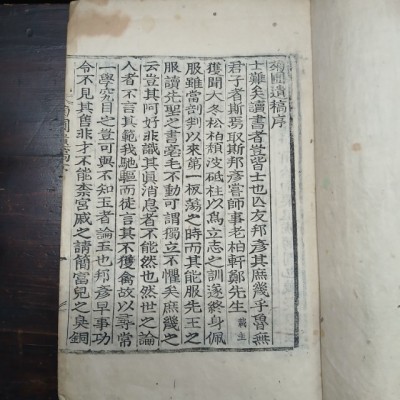 菊圃遺稿序
士難矣讀書者豈習士也亡友邦彥其庶幾乎魯無
君子者斯焉取斯邦彥嘗師事老柏軒鄭先生載圭
獲聞大冬松柏頹波砥柱以爲立志之訓遂終身佩
服雖當剖判以來第一板蕩之時而其能服先王之
服讀先聖之書毫毛不動可謂獨立不懼矣庶幾之
云豈其阿好非識其眞消息者不能然也然世之論
人者不言其範我馳驅而徒言其不獲禽故以尋常
一學究目之豈可與不知玉者論玉也邦彥早事功
令不見其售非才不能柰宮戚之請簡富兒之臭銅